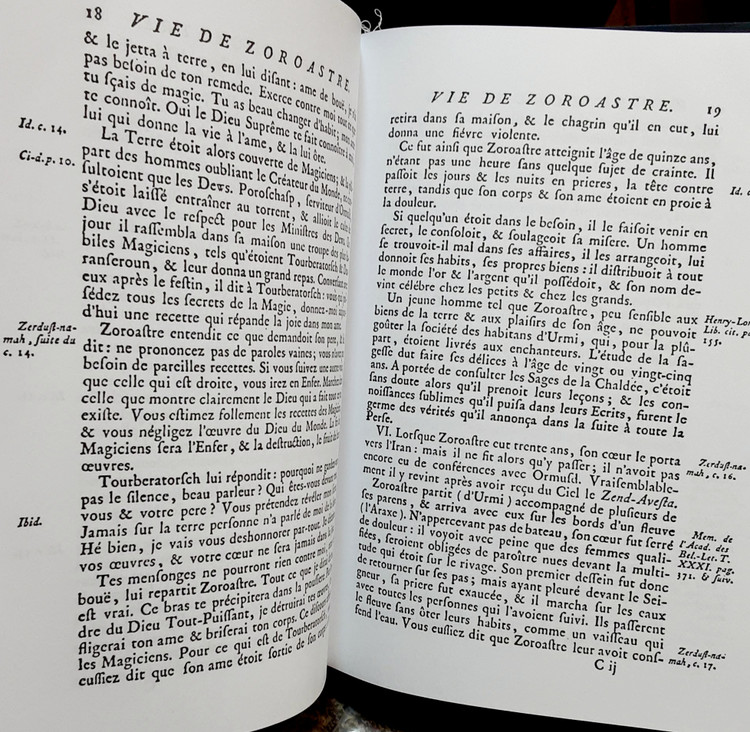 18 VIE DE ZOROASTRE.
& le jetta à terre, en lui disant : ame de bouë, je n'ai
pas besoin de ton remede. Exerce contre moi tout ce que
tu sçais de magie. Tu as beau changer d'habit ; mon ame
te connoît. Oui le Dieu Suprême te fait connoître à moi,
lui qui donne la vie à l'ame, & la lui ôte.
Id. c. 14.
La Terre étoit alors couverte de Magiciens ; & la
Ci-d. p. 10.
part des hommes oubliant le Créateur du Monde,
sultoient que les Dews. Poroschasp, serviteur d'Ormusd,
s'étoit laissé entraîner au torrent, & allioit le culte
Dieu avec le respect pour les Ministres des Dews. Un
jour il rassembla dans sa maison une troupe des plus
biles Magiciens, tels qu'étoient Tourberatorsch &
ranseroun, & leur donna un grand repas. Conversant
eux après le festin, il dit à Tourberatorsch : vous qui
sédez tous les secrets de la Magie, donnez-moi
d'hui une recette qui répande la joie dans mon ame.
Zerdust-na-
mah, suite du
c. 14.
Zoroastre entendit ce que demandoit son pere, &
dit : ne prononcez pas de paroles vaines ; vous n'avez
besoin de pareilles recettes. Si vous suivez une autre
que celle qui est droite, vous irez en Enfer. Marchez
celle que montre clairement le Dieu qui a fait tout
existe. Vous estimez follement les recettes des Magiciens,
& vous négligez l'œuvre du Dieu du Monde. La fin
Magiciens sera l'Enfer, & la destruction, le fruit de
œuvres.
Tourberatorsch lui répondit : pourquoi ne gardez-vous
pas le silence, beau parleur ? Qui êtes-vous devant
vous & votre pere ? Vous prétendez révéler mon
Ibid.
Jamais sur la terre personne n'a parlé de moi de la
Hé bien, je vais vous deshonnorer par-tout. Je
vos œuvres, & votre cœur ne sera jamais dans la
Tes mensonges ne pourront rien contre moi,
bouë, lui repartit Zoroastre. Tout ce que je dirai
est vrai. Ce bras te précipitera dans la poussiere. Par
dre du Dieu Tout-Puissant, je détruirai tes œuvres,
fligerai ton ame & briserai ton corps. Ce discours
les Magiciens. Pour ce qui est de Tourberatorsch,
eussiez dit que son ame étoit sortie de son corps.
VIE DE ZOROASTRE. 19
retira dans sa maison, & le chagrin qu'il en eut, lui
donna une fiévre violente.
Ce fut ainsi que Zoroastre atteignit l'âge de quinze ans,
n'étant pas une heure sans quelque sujet de crainte. Il
passoit les jours & les nuits en prieres, la tête contre
Id. c.
terre, tandis que son corps & son ame étoient en proie à
la douleur.
Si quelqu'un étoit dans le besoin, il le faisoit venir en
secret, le consoloit, & soulageoit sa misere. Un homme
se trouvoit-il mal dans ses affaires, il les arrangeoit, lui
donnoit ses habits, ses propres biens : il distribuoit à tout
le monde l'or & l'argent qu'il possédoit, & son nom de-
vint célébre chez les petits & chez les grands.
Un jeune homme tel que Zoroastre, peu sensible aux
Henry-Lor
Lib. cit. p.
155.
biens de la terre & aux plaisirs de son âge, ne pouvoit
goûter la société des habitans d'Urmi, qui, pour la plû-
part, étoient livrés aux enchanteurs. L'étude de la sa-
gesse dut faire ses délices à l'âge de vingt ou vingt-cinq
ans. A portée de consulter les Sages de la Chaldée, c'étoit
sans doute alors qu'il prenoit leurs leçons ; & les con-
noissances sublimes qu'il puisa dans leurs Ecrits, furent le
germe des vérités qu'il annonça dans la suite à toute la
Perse.
VI. Lorsque Zoroastre eut trente ans, son cœur le porta
Zerdust-na-
mah, c. 16.
vers l'Iran : mais il ne fit alors qu'y passer ; il n'avoit pas
encore eu de conférences avec Ormusd. Vraisemblable-
ment il y revint après avoir reçu du Ciel le Zend-Avesta.
Zoroastre partit (d'Urmi) accompagné de plusieurs de
ses parens, & arriva avec eux sur les bords d'un fleuve
Mem. de
l'Acad. des
Bel-Let. T.
XXXI. pag.
371. & suiv.
(l'Araxe). N'appercevant pas de bateau, son cœur fut serré
de douleur : il voyoit avec peine que des femmes quali-
fiées, seroient obligées de paroître nues devant la multi-
tude qui étoit sur le rivage. Son premier dessein fut donc
de retourner sur ses pas ; mais ayant pleuré devant le Sei-
gneur, sa priere fut exaucée, & il marcha sur les eaux
avec toutes les personnes qui l'avoient suivi. Ils passerent
le fleuve sans ôter leurs habits, comme un vaisseau qui
fend l'eau. Vous eussiez dit que Zoroastre leur avoit cons-
Zerdust-na-
mah, c. 17.
C ij